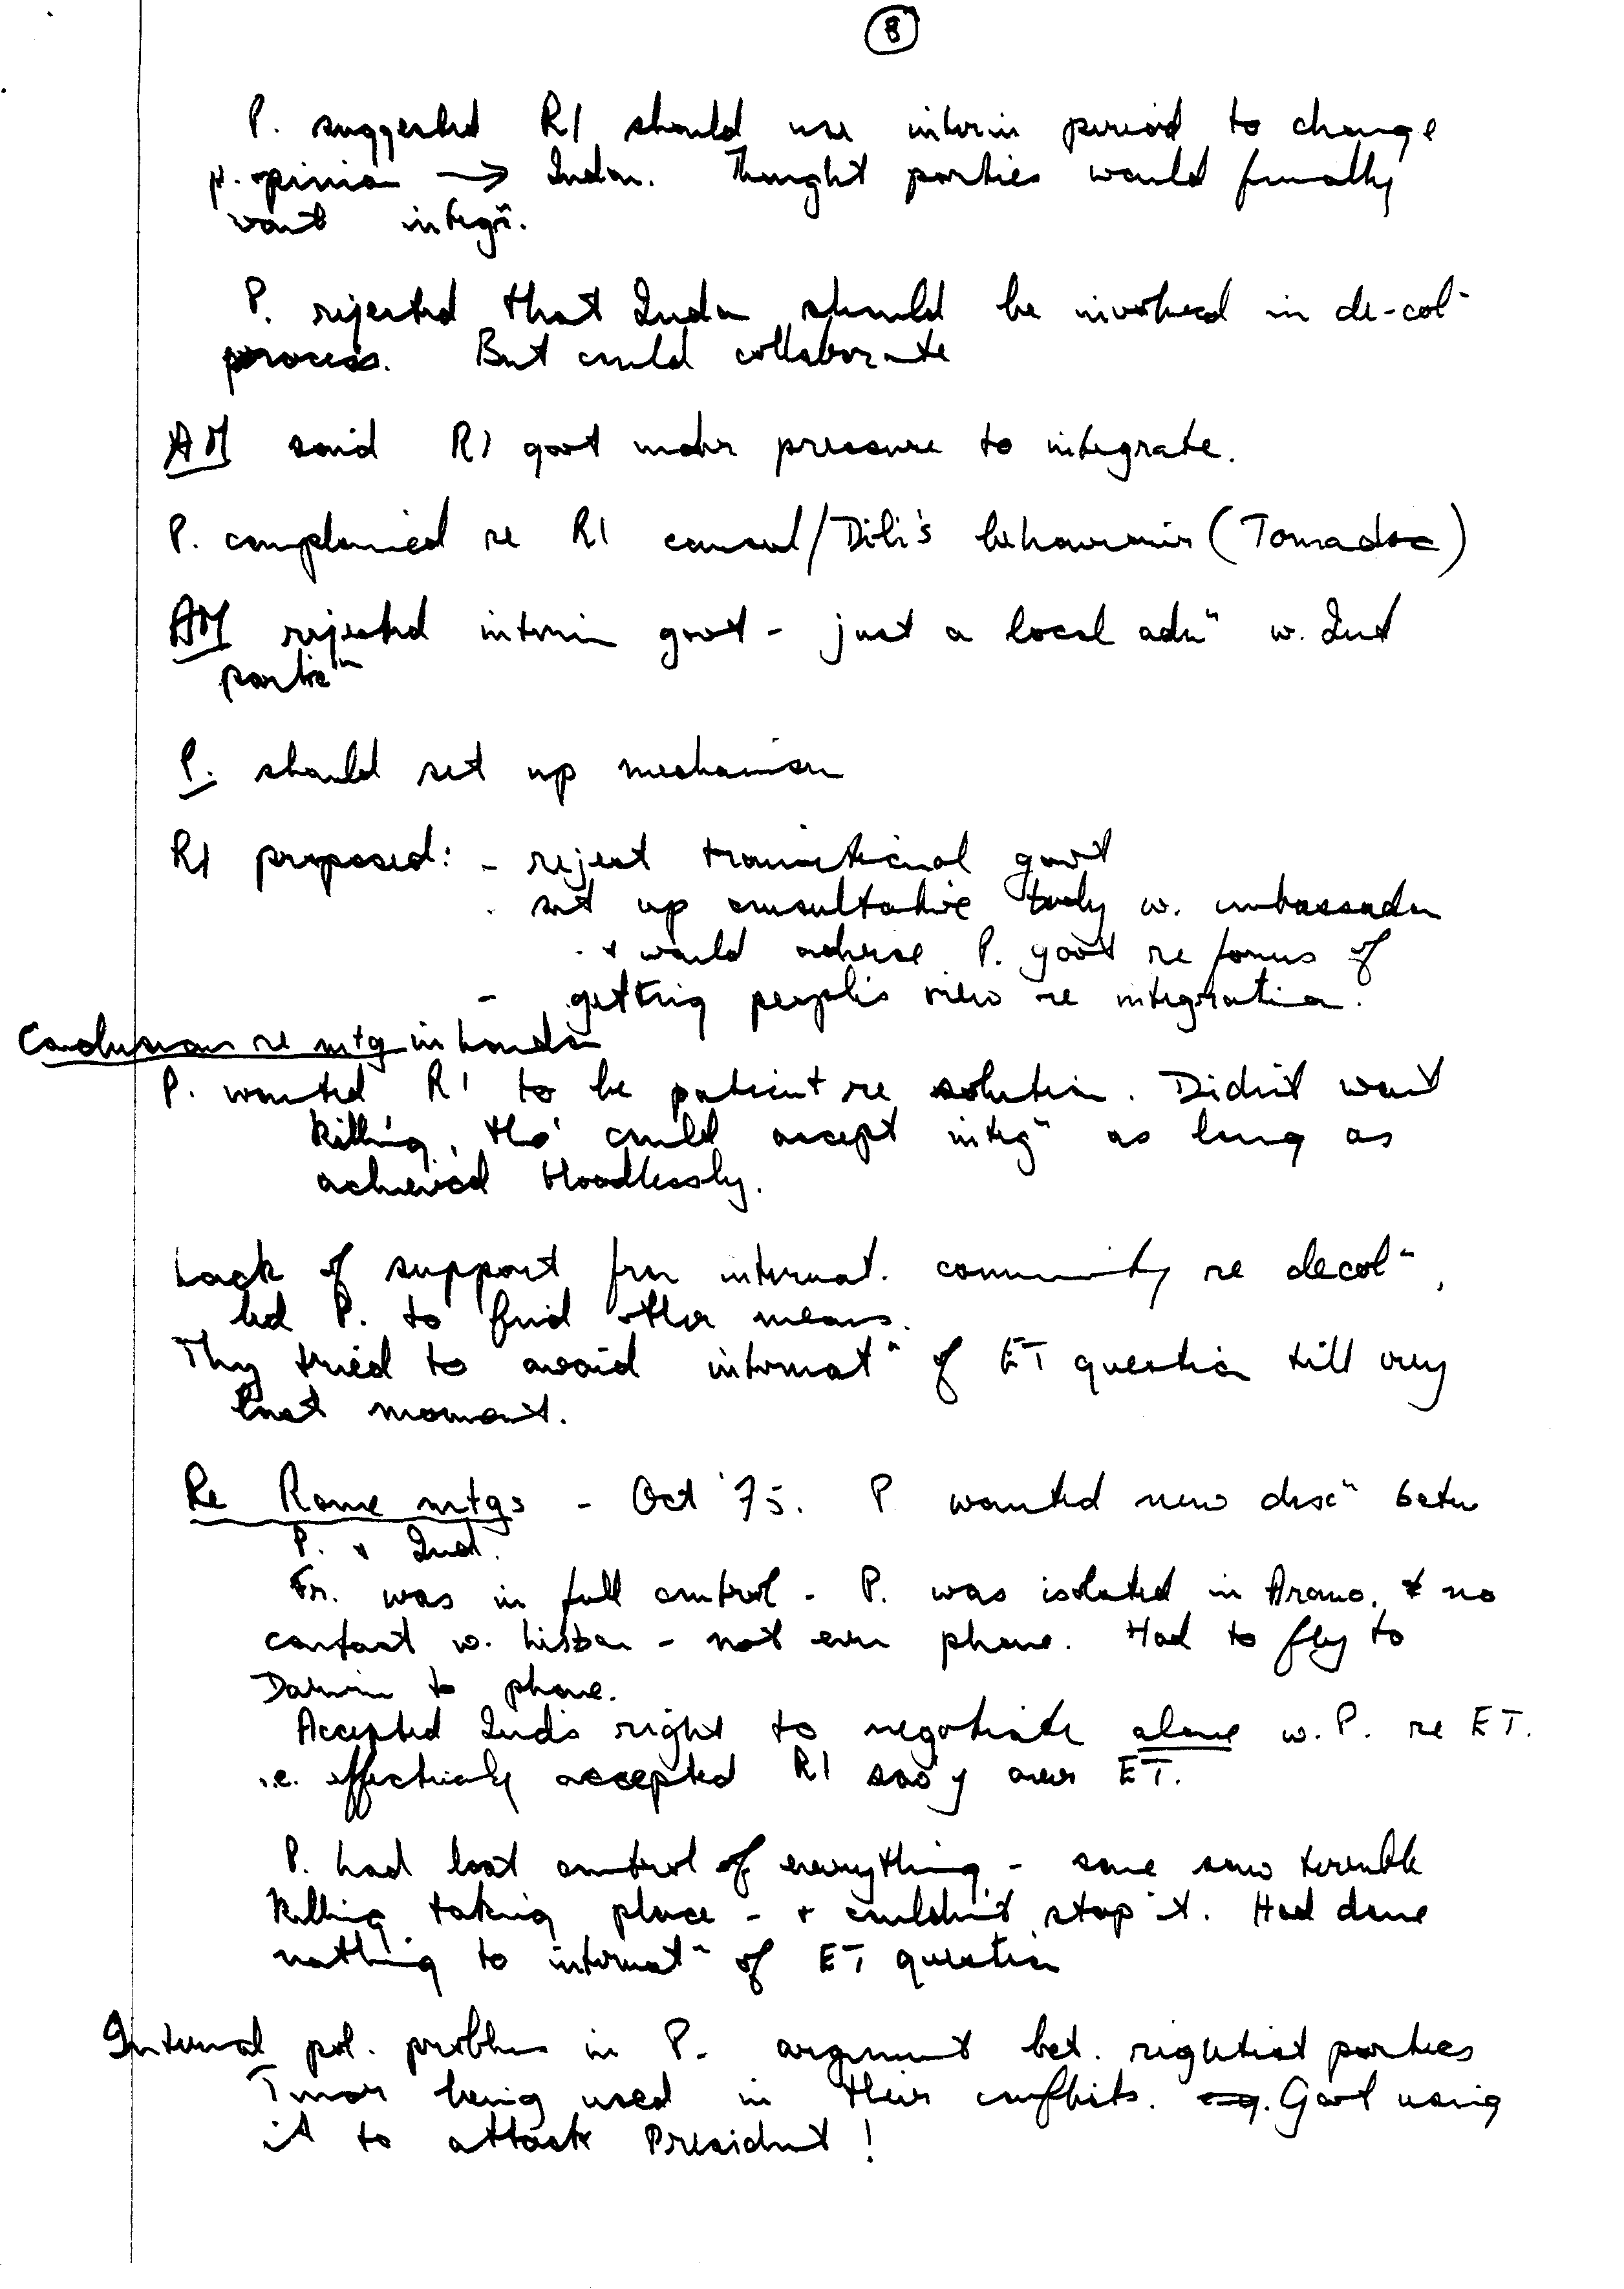 8
P. suggested RI should use interim period to change
p. opinion → Indon. Thought parties would finally
want integn.
P. rejected that Indon should be involved in de-coln
process. But could collaborate
AM said RI govt under pressure to integrate.
P. complained re RI consul/Dili's behaviour (Tomadoc)
AM rejected interim govt - just a local admn w. Ind
particn
P. should set up mechanism
RI proposed: - reject transitional govt
- set up consultative body w. ambassador
- + would advise P. govt re forms of
- getting people's view re integration.
Conclusions re mtg in London
P. wanted RI to be patient re solution. Didn't want
killing, tho' could accept integn as long as
achieved bloodlessly.
Lack of support from internat. community re decoln,
led P. to find other means.
They tried to avoid internatn of ET question till very
last moment.
Re Rome mtgs - Oct '75. P wanted new discn betw
P. + Ind.
Fr. was in full control - P. was isolated in Atauro. + no
contact w. Lisbon - not even phone. Had to fly to
Darwin to phone.
Accepted Ind's right to negotiate alone w. P. re ET.
i.e. effectively accepted RI sov'y over ET.
P. had lost control of everything - some saw terrible
killing taking place - + couldn't stop it. Had done
nothing to internatn of ET question
Internal pol. problem in P. argument bet. rightist parties
Timor being used in their conflicts. eg. Govt using
it to attack President!